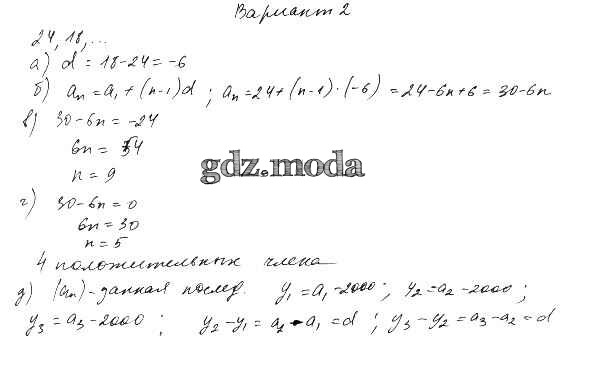 Вариант 2
24, 18, ...
а) d = 18-24 = -6
б) aₙ = a₁ + (n-1)d ; aₙ = 24 + (n-1)·(-6) = 24-6n+6 = 30-6n
в) 30-6n = -24
6n = 54
n = 9
gdz.moda
г) 30-6n = 0
6n = 30
n = 5
4 положительных члена
д) (aₙ) - данная послед. y₁ = a₁-2000 ; y₂ = a₂-2000 ;
y₃ = a₃-2000 ; y₂-y₁ = a₂-a₁ = d ; y₃-y₂ = a₃-a₂ = d